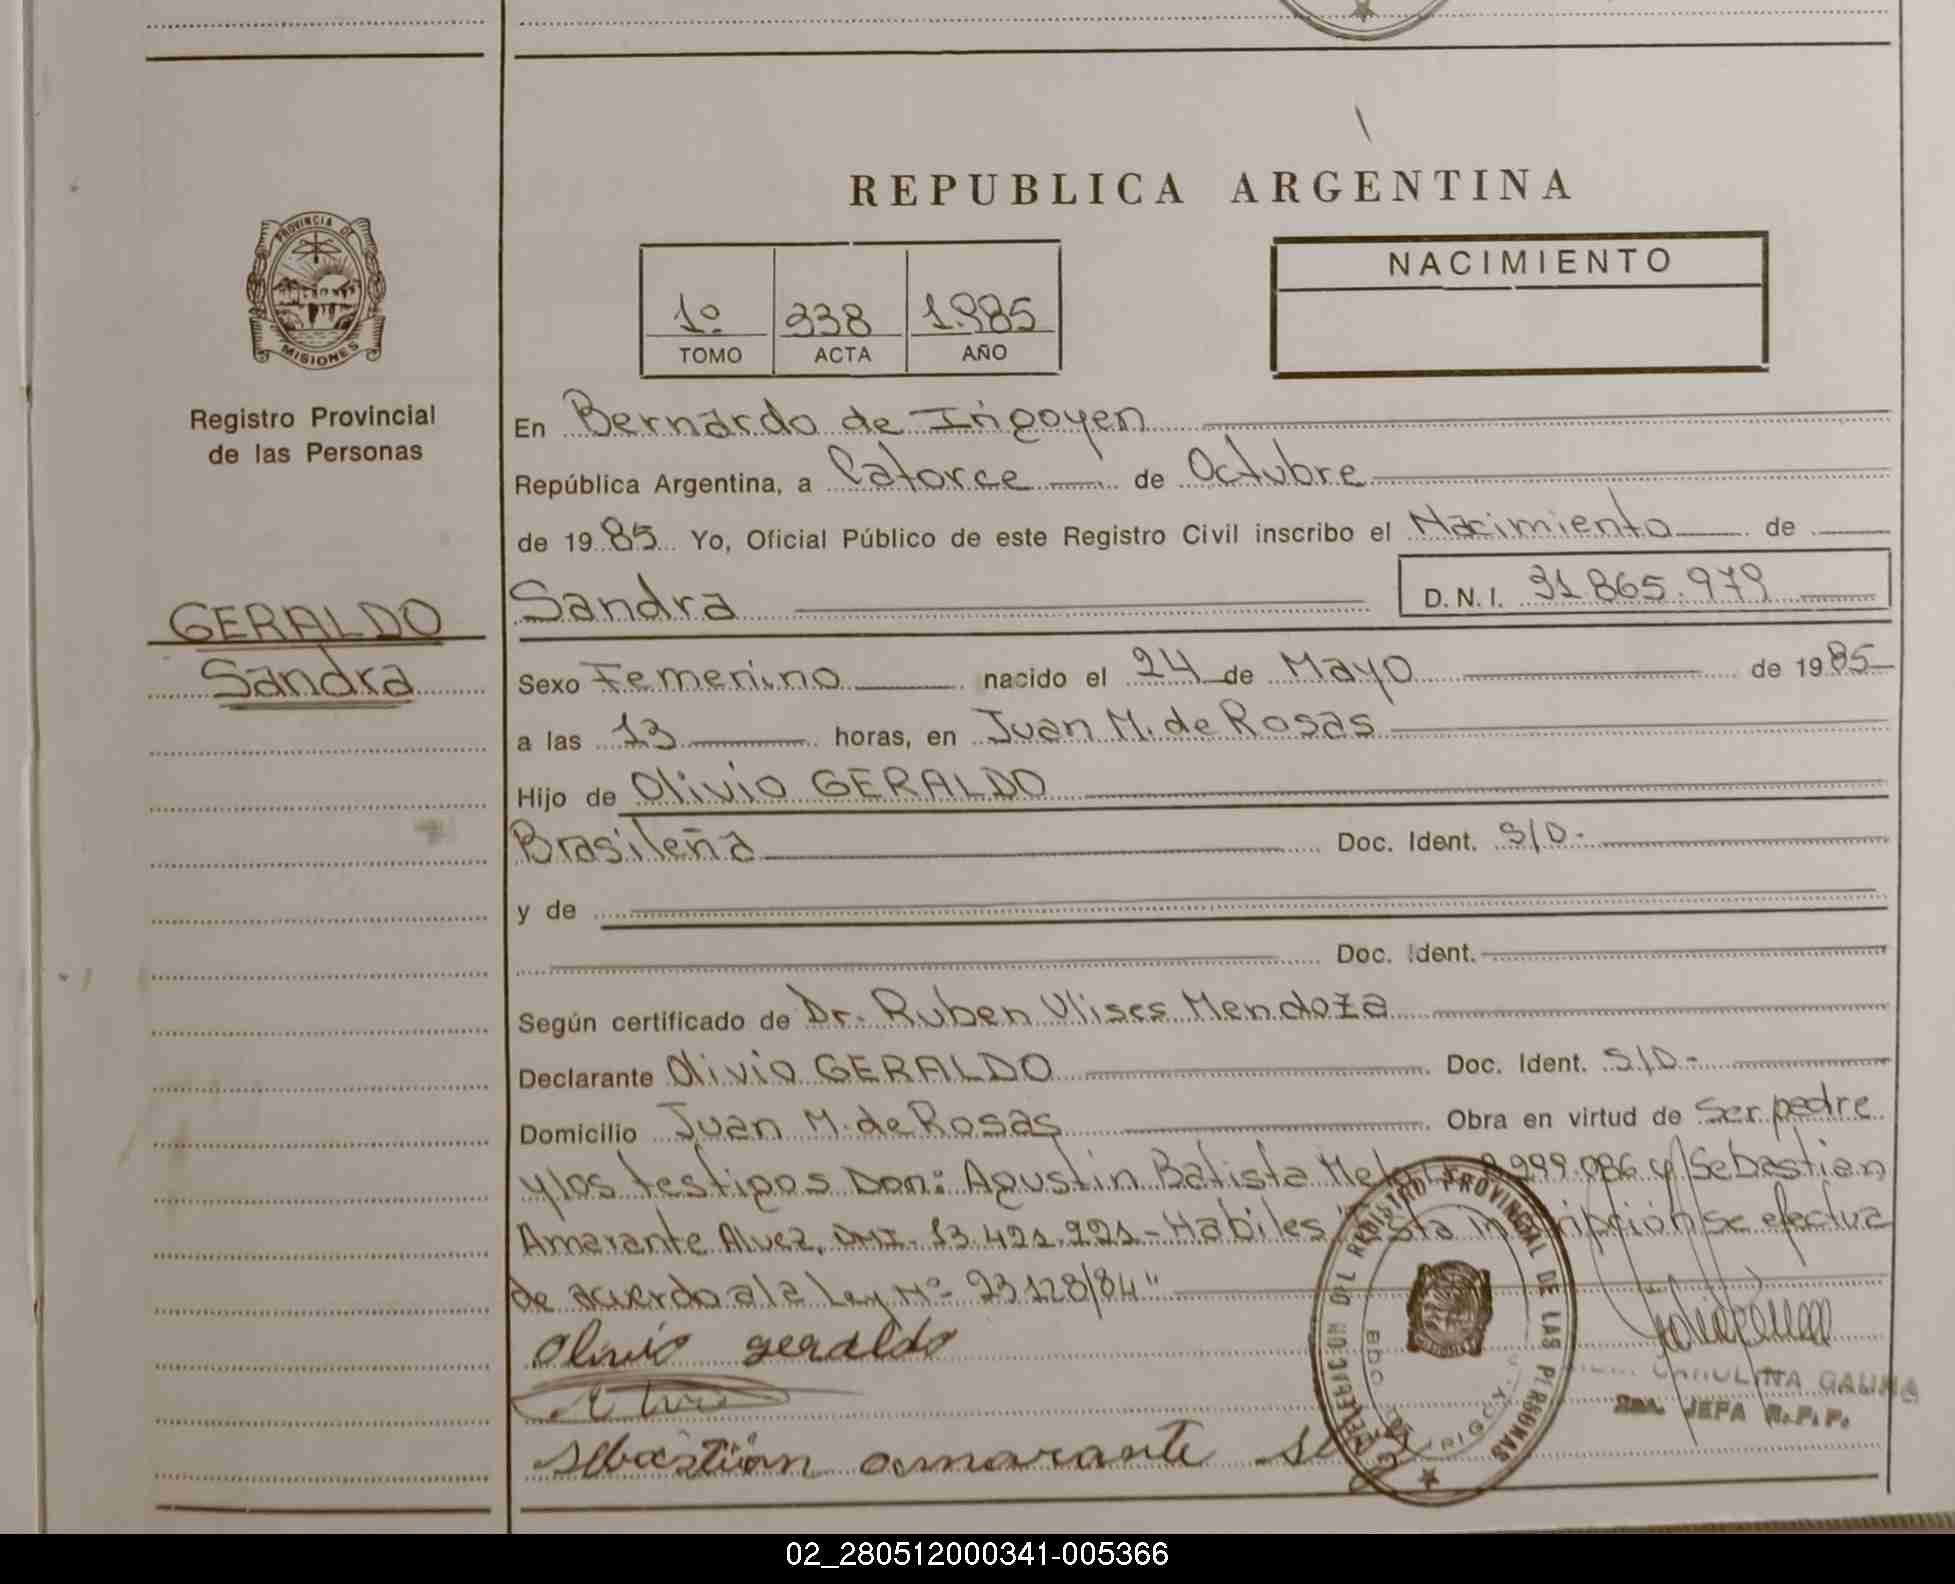 REPUBLICA ARGENTINA
PROVINCIA DE
MISIONES
Registro Provincial
de las Personas
GERALDO
Sandra
1º 338 1.985
TOMO ACTA AÑO
NACIMIENTO
En Bernardo de Irigoyen
República Argentina, a Catorce de Octubre
de 19 85 Yo, Oficial Público de este Registro Civil inscribo el Nacimiento de
Sandra D.N.I. 31.865.979
Sexo Femenino nacido el 24 de Mayo de 19 85
a las 13 horas, en Juan M. de Rosas
Hijo de Olivio GERALDO
Brasileña Doc. Ident. S/D.
y de
Doc. Ident.
Según certificado de Dr. Ruben Ulises Mendoza
Declarante Olivio GERALDO Doc. Ident. S/D.-
Domicilio Juan M. de Rosas Obra en virtud de Ser padre
y los testigos Don: Agustin Batista y Sebastian
Amarante Alvez, DNI. 13.421.221 - Habiles "Esta inscripción se efectua
de acuerdo a la Ley Nº 23128/84"
Olivio geraldo
sebastian amarante
DELEGACION DEL REGISTRO PROVINCIAL DE LAS PERSONAS
CAROLINA GAUNA
JEFA R.P.P.
02_280512000341-005366